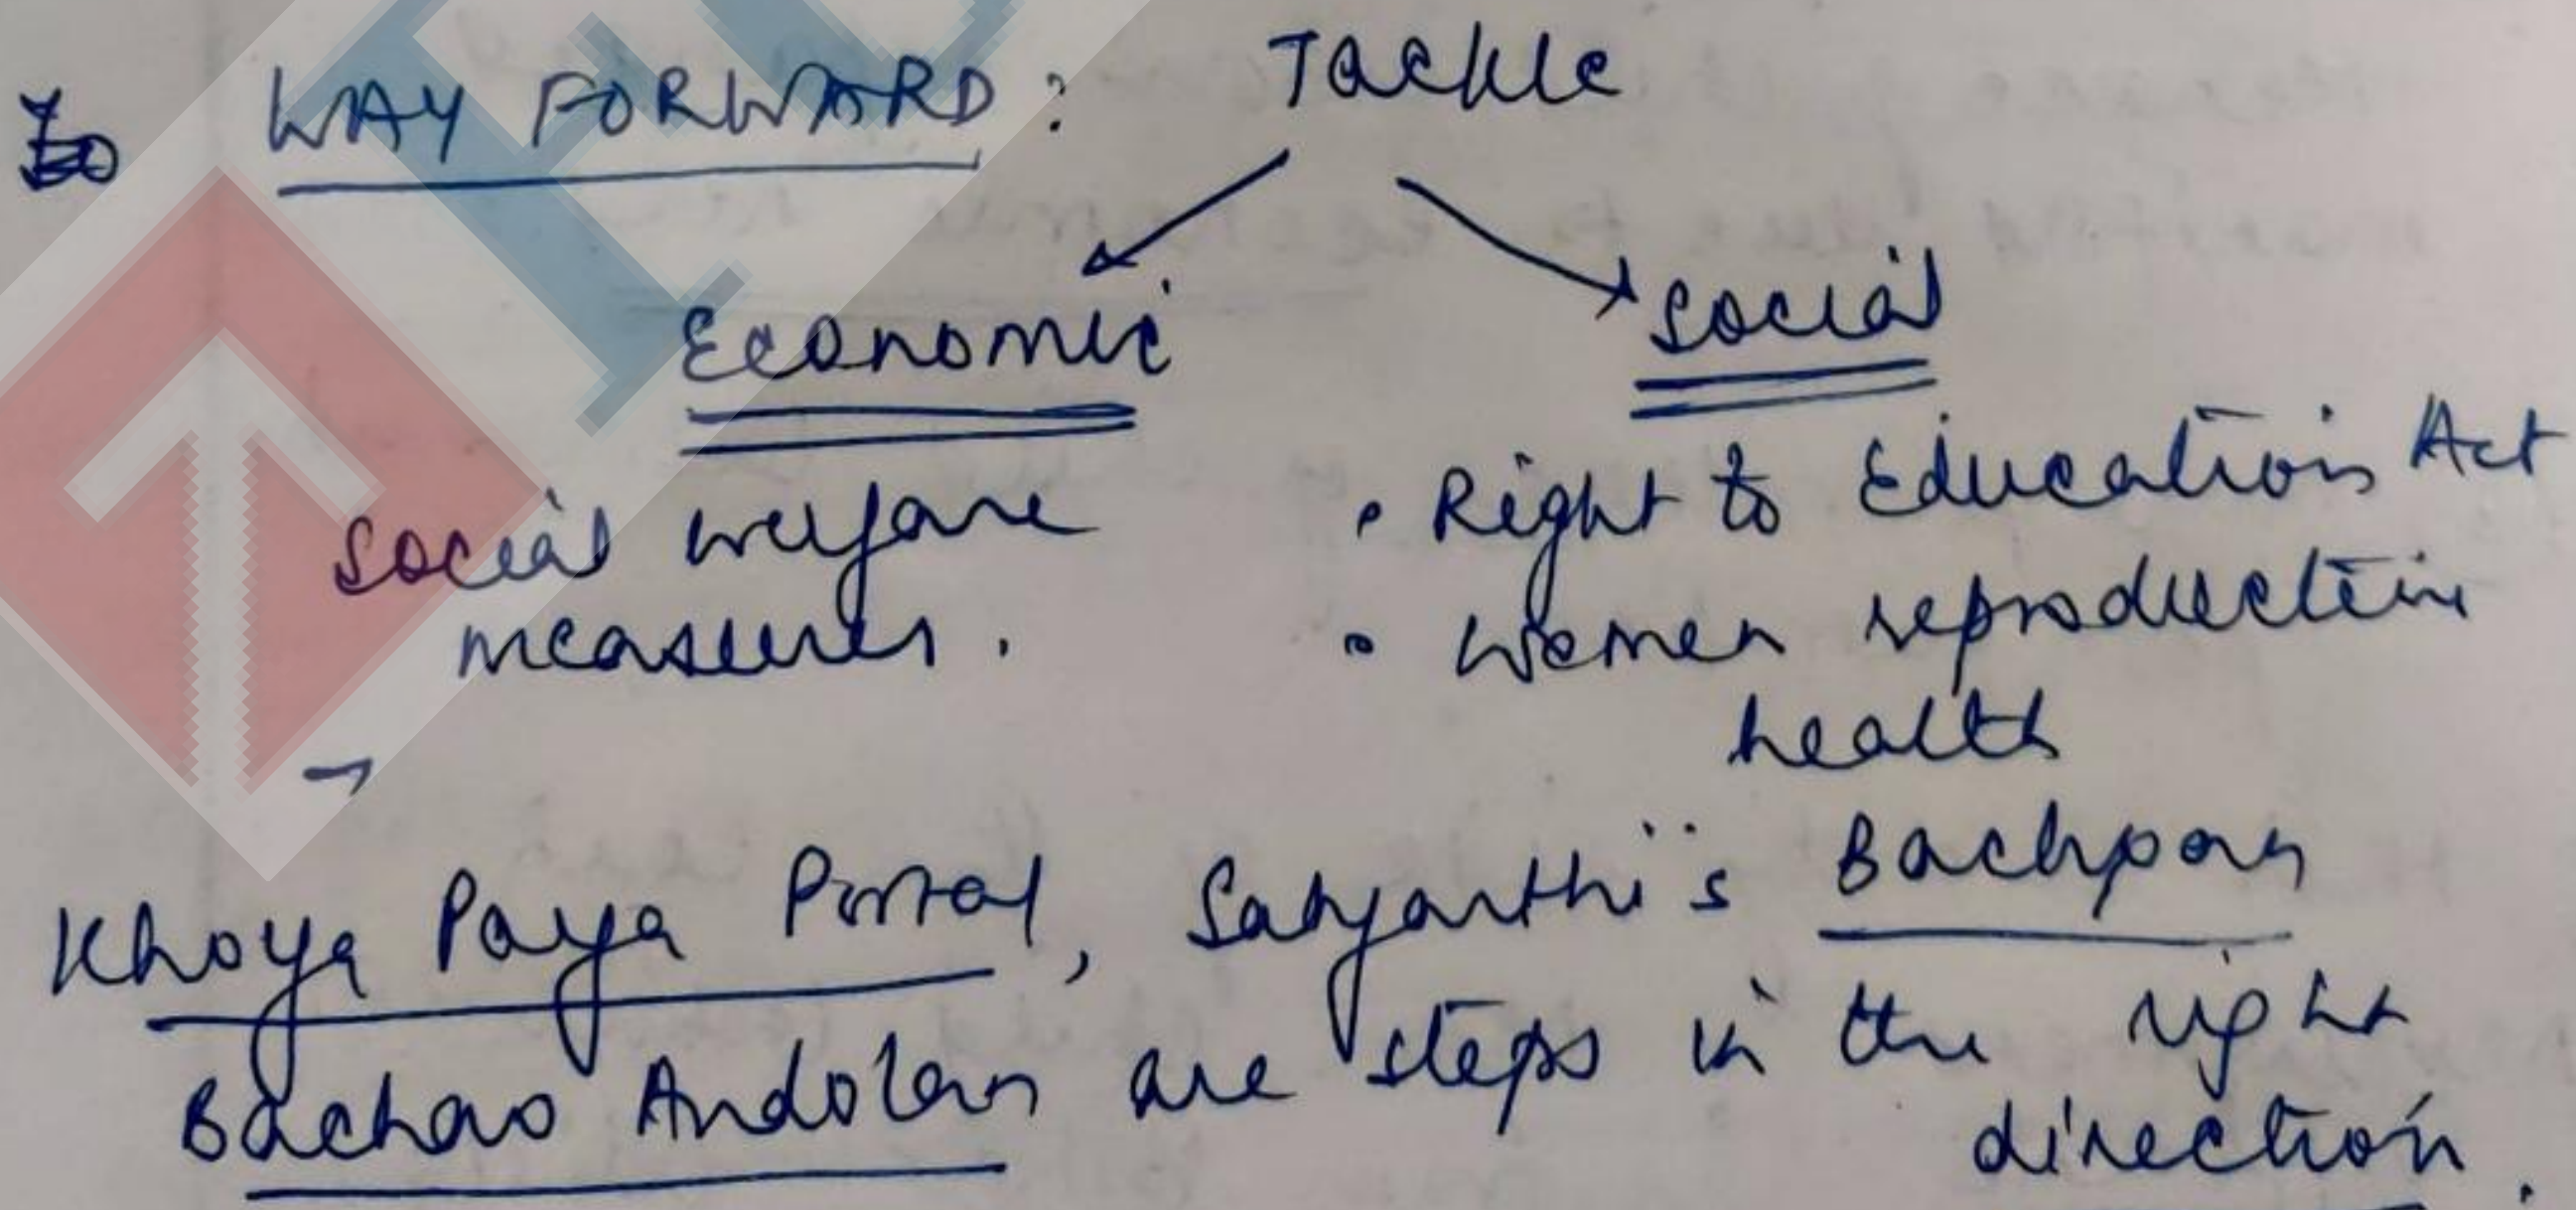 WAY FORWARD : Tackle
Economic
Social
Social welfare
measures.
• Right to Education Act
• Women reproductive
health
Khoya Paya Portal, Satyarthi's Bachpan
Bachao Andolan are steps in the right
direction.